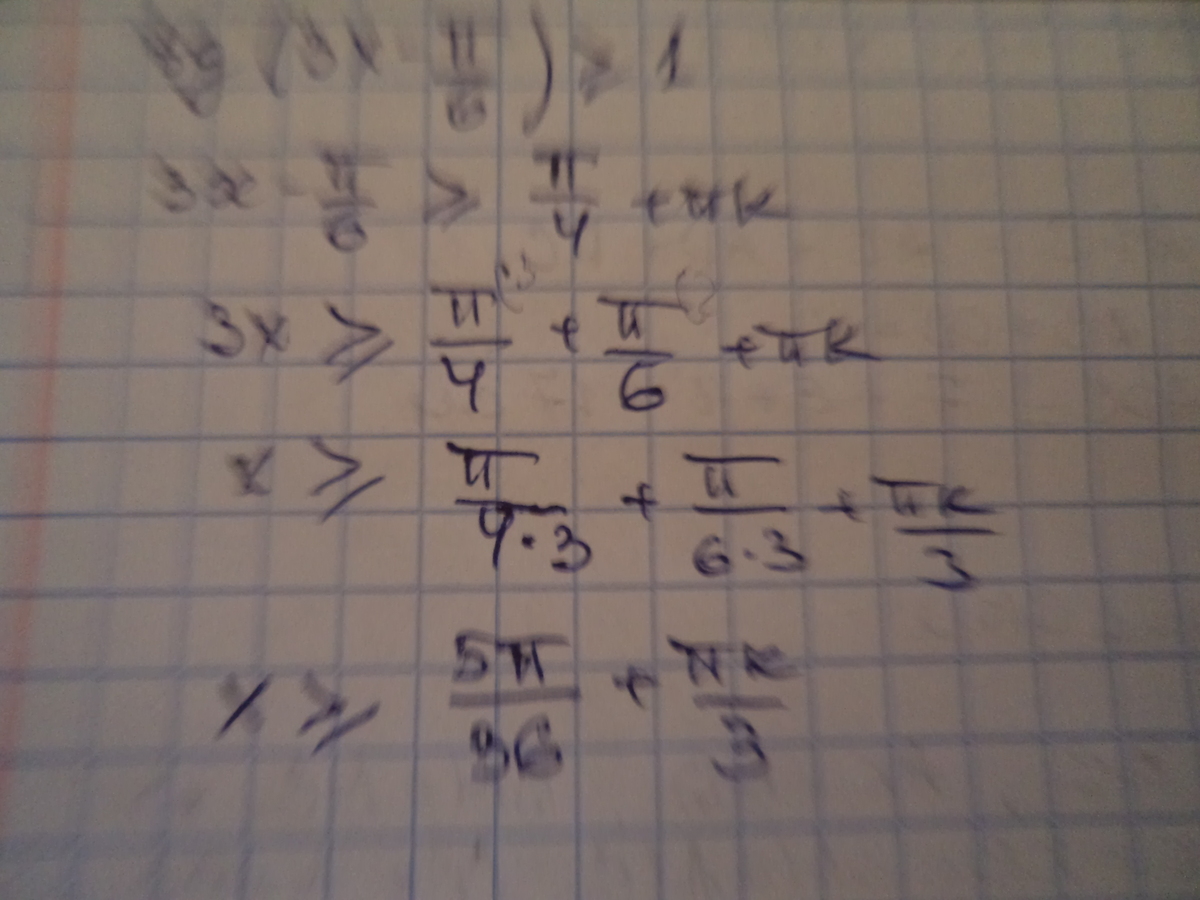 (3x - π/6) > 1
3x - π/6 ≥ π/4 + πk
3x ≥ π/4 + π/6 + πk
x ≥ π/(4·3) + π/(6·3) + πk/3
x ≥ 5π/36 + πk/3